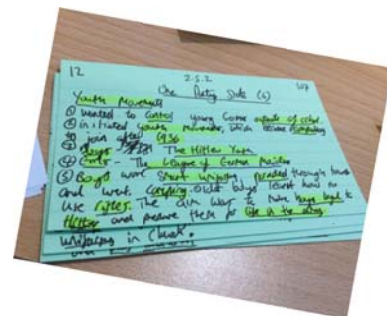 12 2.5.2
One Party State (6)
Youth Movements
① wanted to control young
② initiated youth movement, which became compulsory
to join after 1936
③ Boys - The Hitler Youth
④ Girls - The League of German Maidens
⑤ Boys wore smart uniforms, paraded through towns
and went camping. older boys learnt how to
use rifles. The aim was to make boys loyal to
Hitler and prepare them for life in the army
uniforms in church.